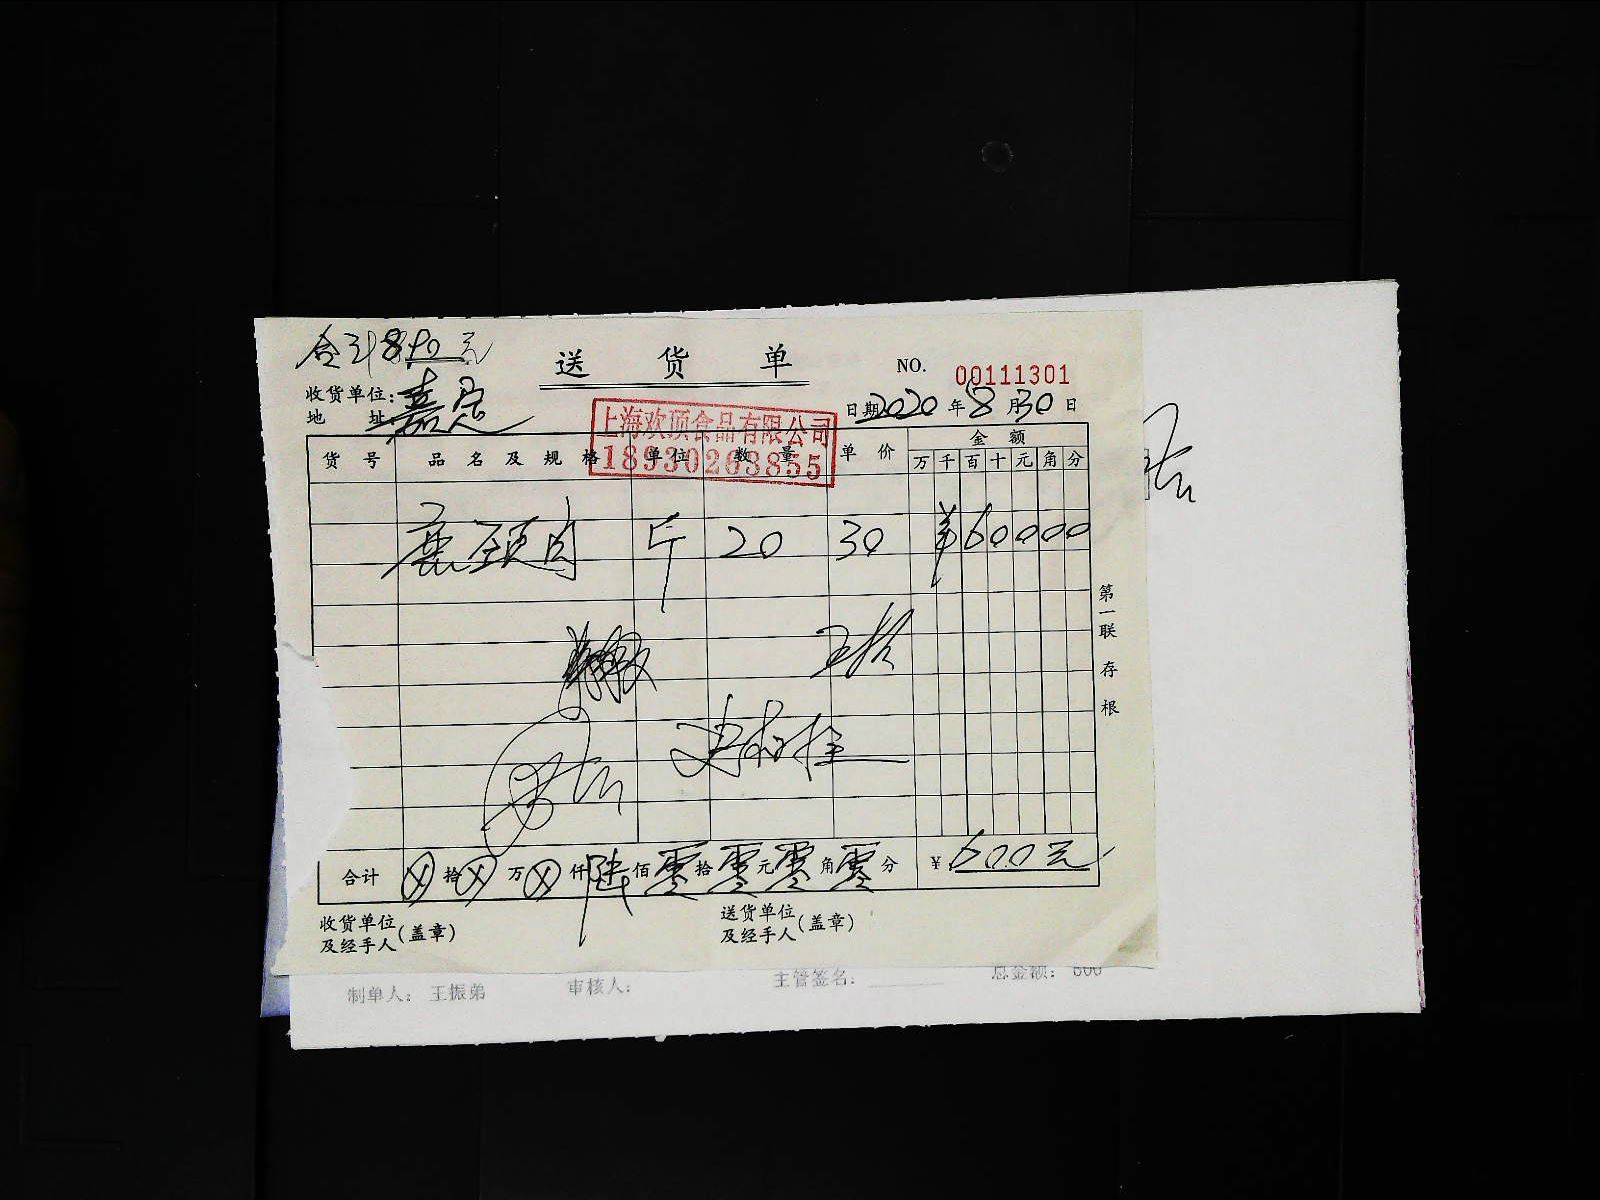 合计890元
送货单
NO. 00111301
收货单位:嘉定
地址
日期2020年8月30日
上海欢顶食品有限公司
18930263855
货号 品名及规格 单位 数量 单价 金额
万千百十元角分
鹿颈肉 斤 20 30 ¥60000
第一联 存根
合计 ⊗拾⊗万⊗仟陆佰零拾零元零角零分 ¥600元
收货单位及经手人(盖章)
送货单位及经手人(盖章)
制单人: 王振弟 审核人: 主管签名: 总金额: 600